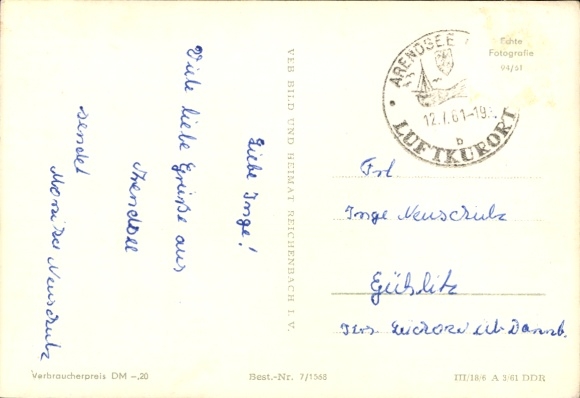 Liebe Inge!
Viele liebe Grüße aus
Arendsee
sendet
Monika Neuschulz
VEB BILD UND HEIMAT REICHENBACH I. V.
ARENDSEE
12.7.61-19
b
LUFTKURORT
Echte
Fotografie
94/61
Frl
Inge Neuschulz
Krs. Lüchow üb Dannb.
Verbraucherpreis DM -,20
Best.-Nr. 7/1568
III/18/6 A 3/61 DDR